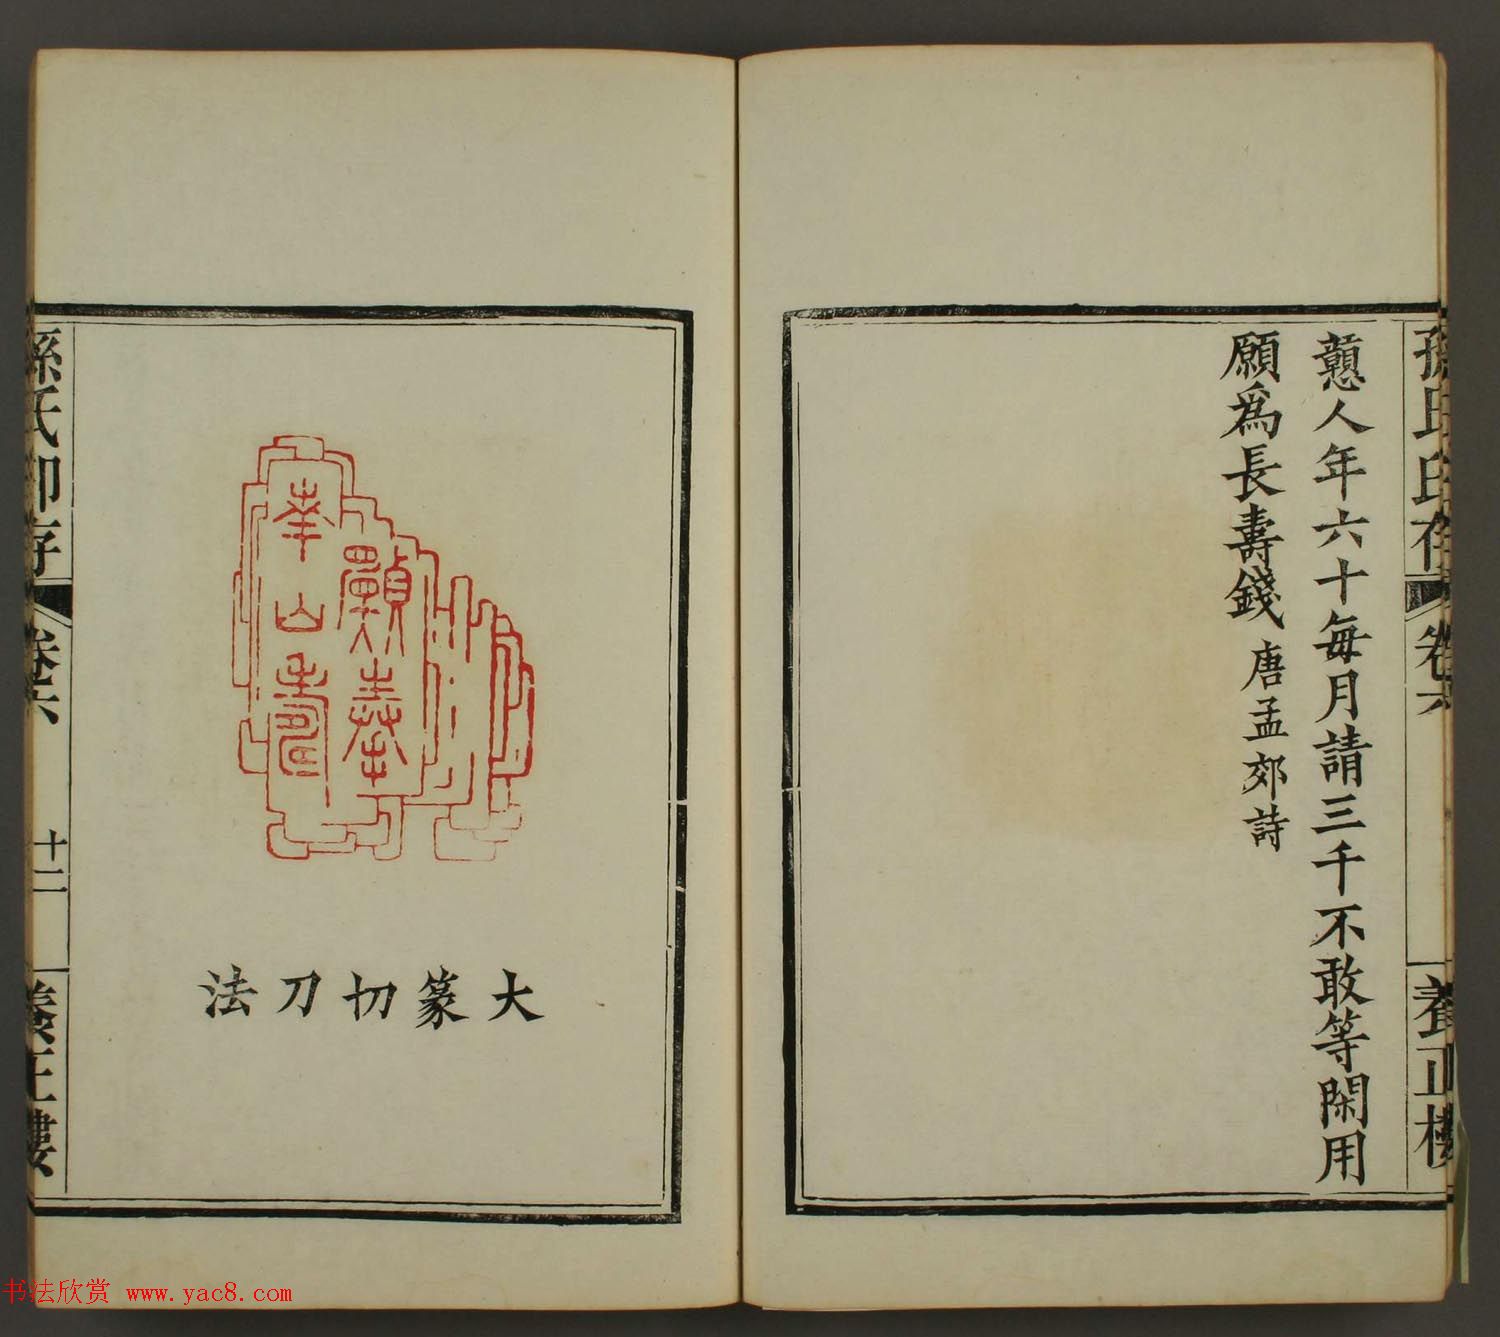 孫氏印存
卷六
養正樓
戇人年六十每月請三千不敢等閑用
願爲長壽錢 唐孟郊詩
願奉
華山壽
大篆切刀法
孫氏印存
卷六
十二
養正樓
书法欣赏 www.yac8.com